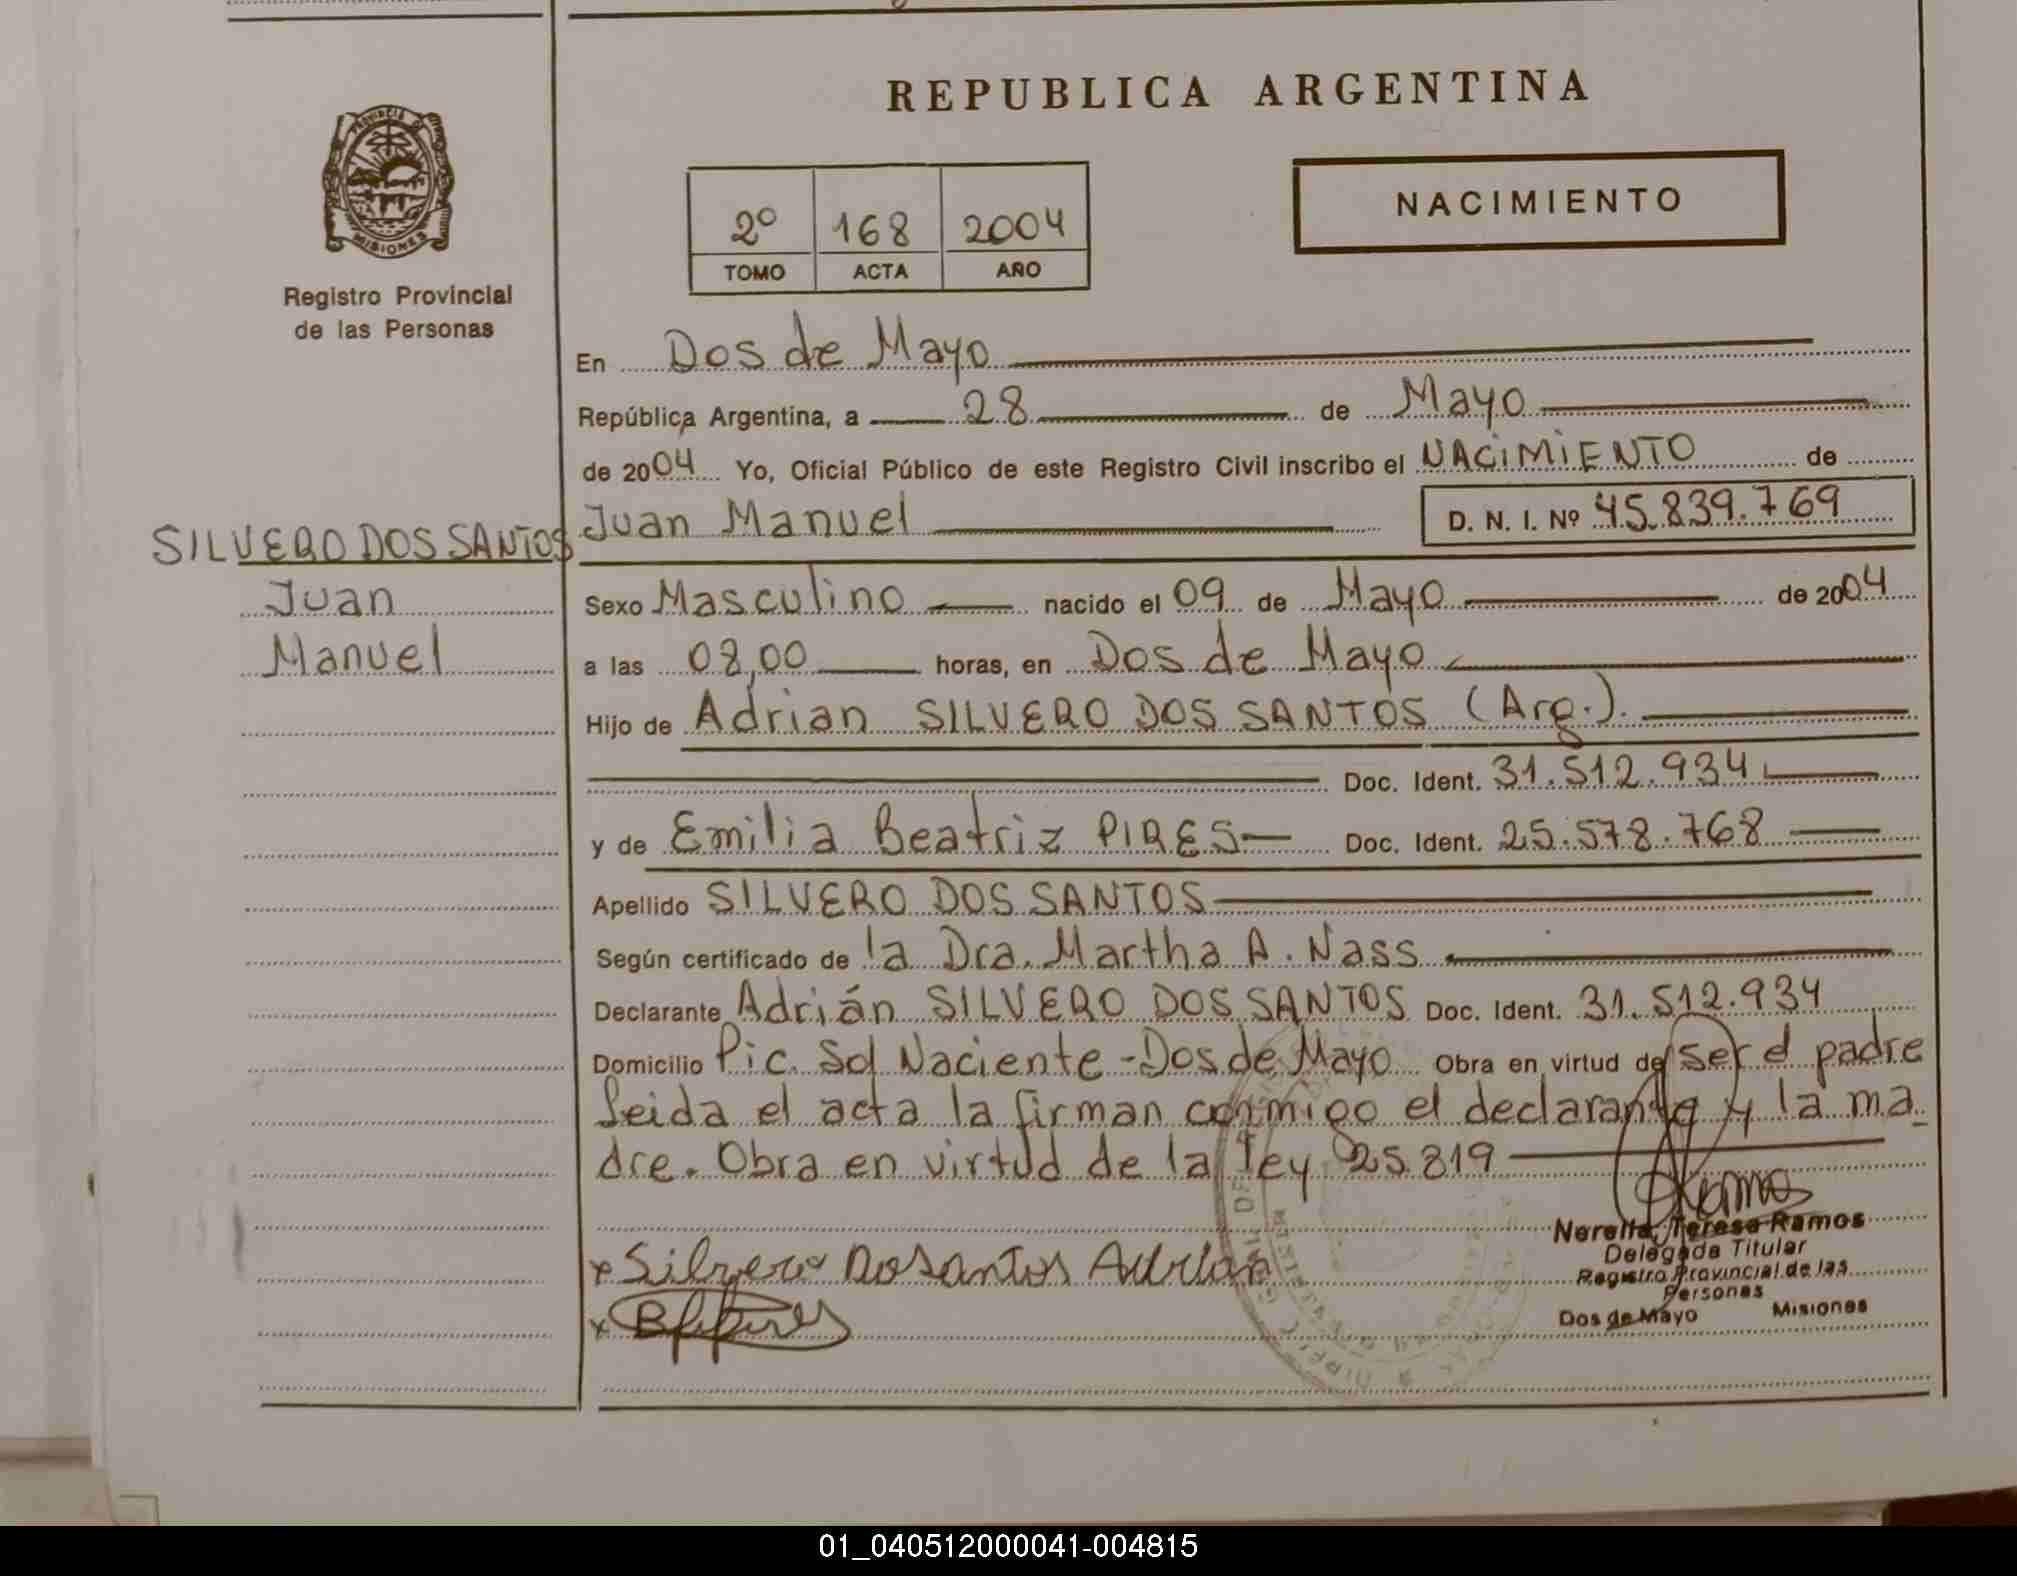 REPUBLICA ARGENTINA
PROVINCIA DE
MISIONES
Registro Provincial
de las Personas
2º 168 2004
TOMO ACTA AÑO
NACIMIENTO
En Dos de Mayo
República Argentina, a 28 de Mayo
de 2004 Yo, Oficial Público de este Registro Civil inscribo el NACIMIENTO de
Juan Manuel D. N. I. Nº 45.839.769
SILVERO DOS SANTOS
Juan
Manuel
Sexo Masculino nacido el 09 de Mayo de 2004
a las 08,00 horas, en Dos de Mayo
Hijo de Adrian SILVERO DOS SANTOS (Arg.).
Doc. Ident. 31.512.934
y de Emilia Beatriz PIRES Doc. Ident. 25.578.768
Apellido SILVERO DOS SANTOS
Según certificado de la Dra. Martha A. Nass
Declarante Adrián SILVERO DOS SANTOS Doc. Ident. 31.512.934
Domicilio Pic. Sol Naciente - Dos de Mayo Obra en virtud de ser el padre
Leida el acta la firman conmigo el declarante y la ma-
dre. Obra en virtud de la ley 25.819
x Silvero Dosantos Adrian
x
Ramos
Nerelta Teresa Ramos
Delegada Titular
Registro Provincial de las
Personas
Dos de Mayo Misiones
01_040512000041-004815